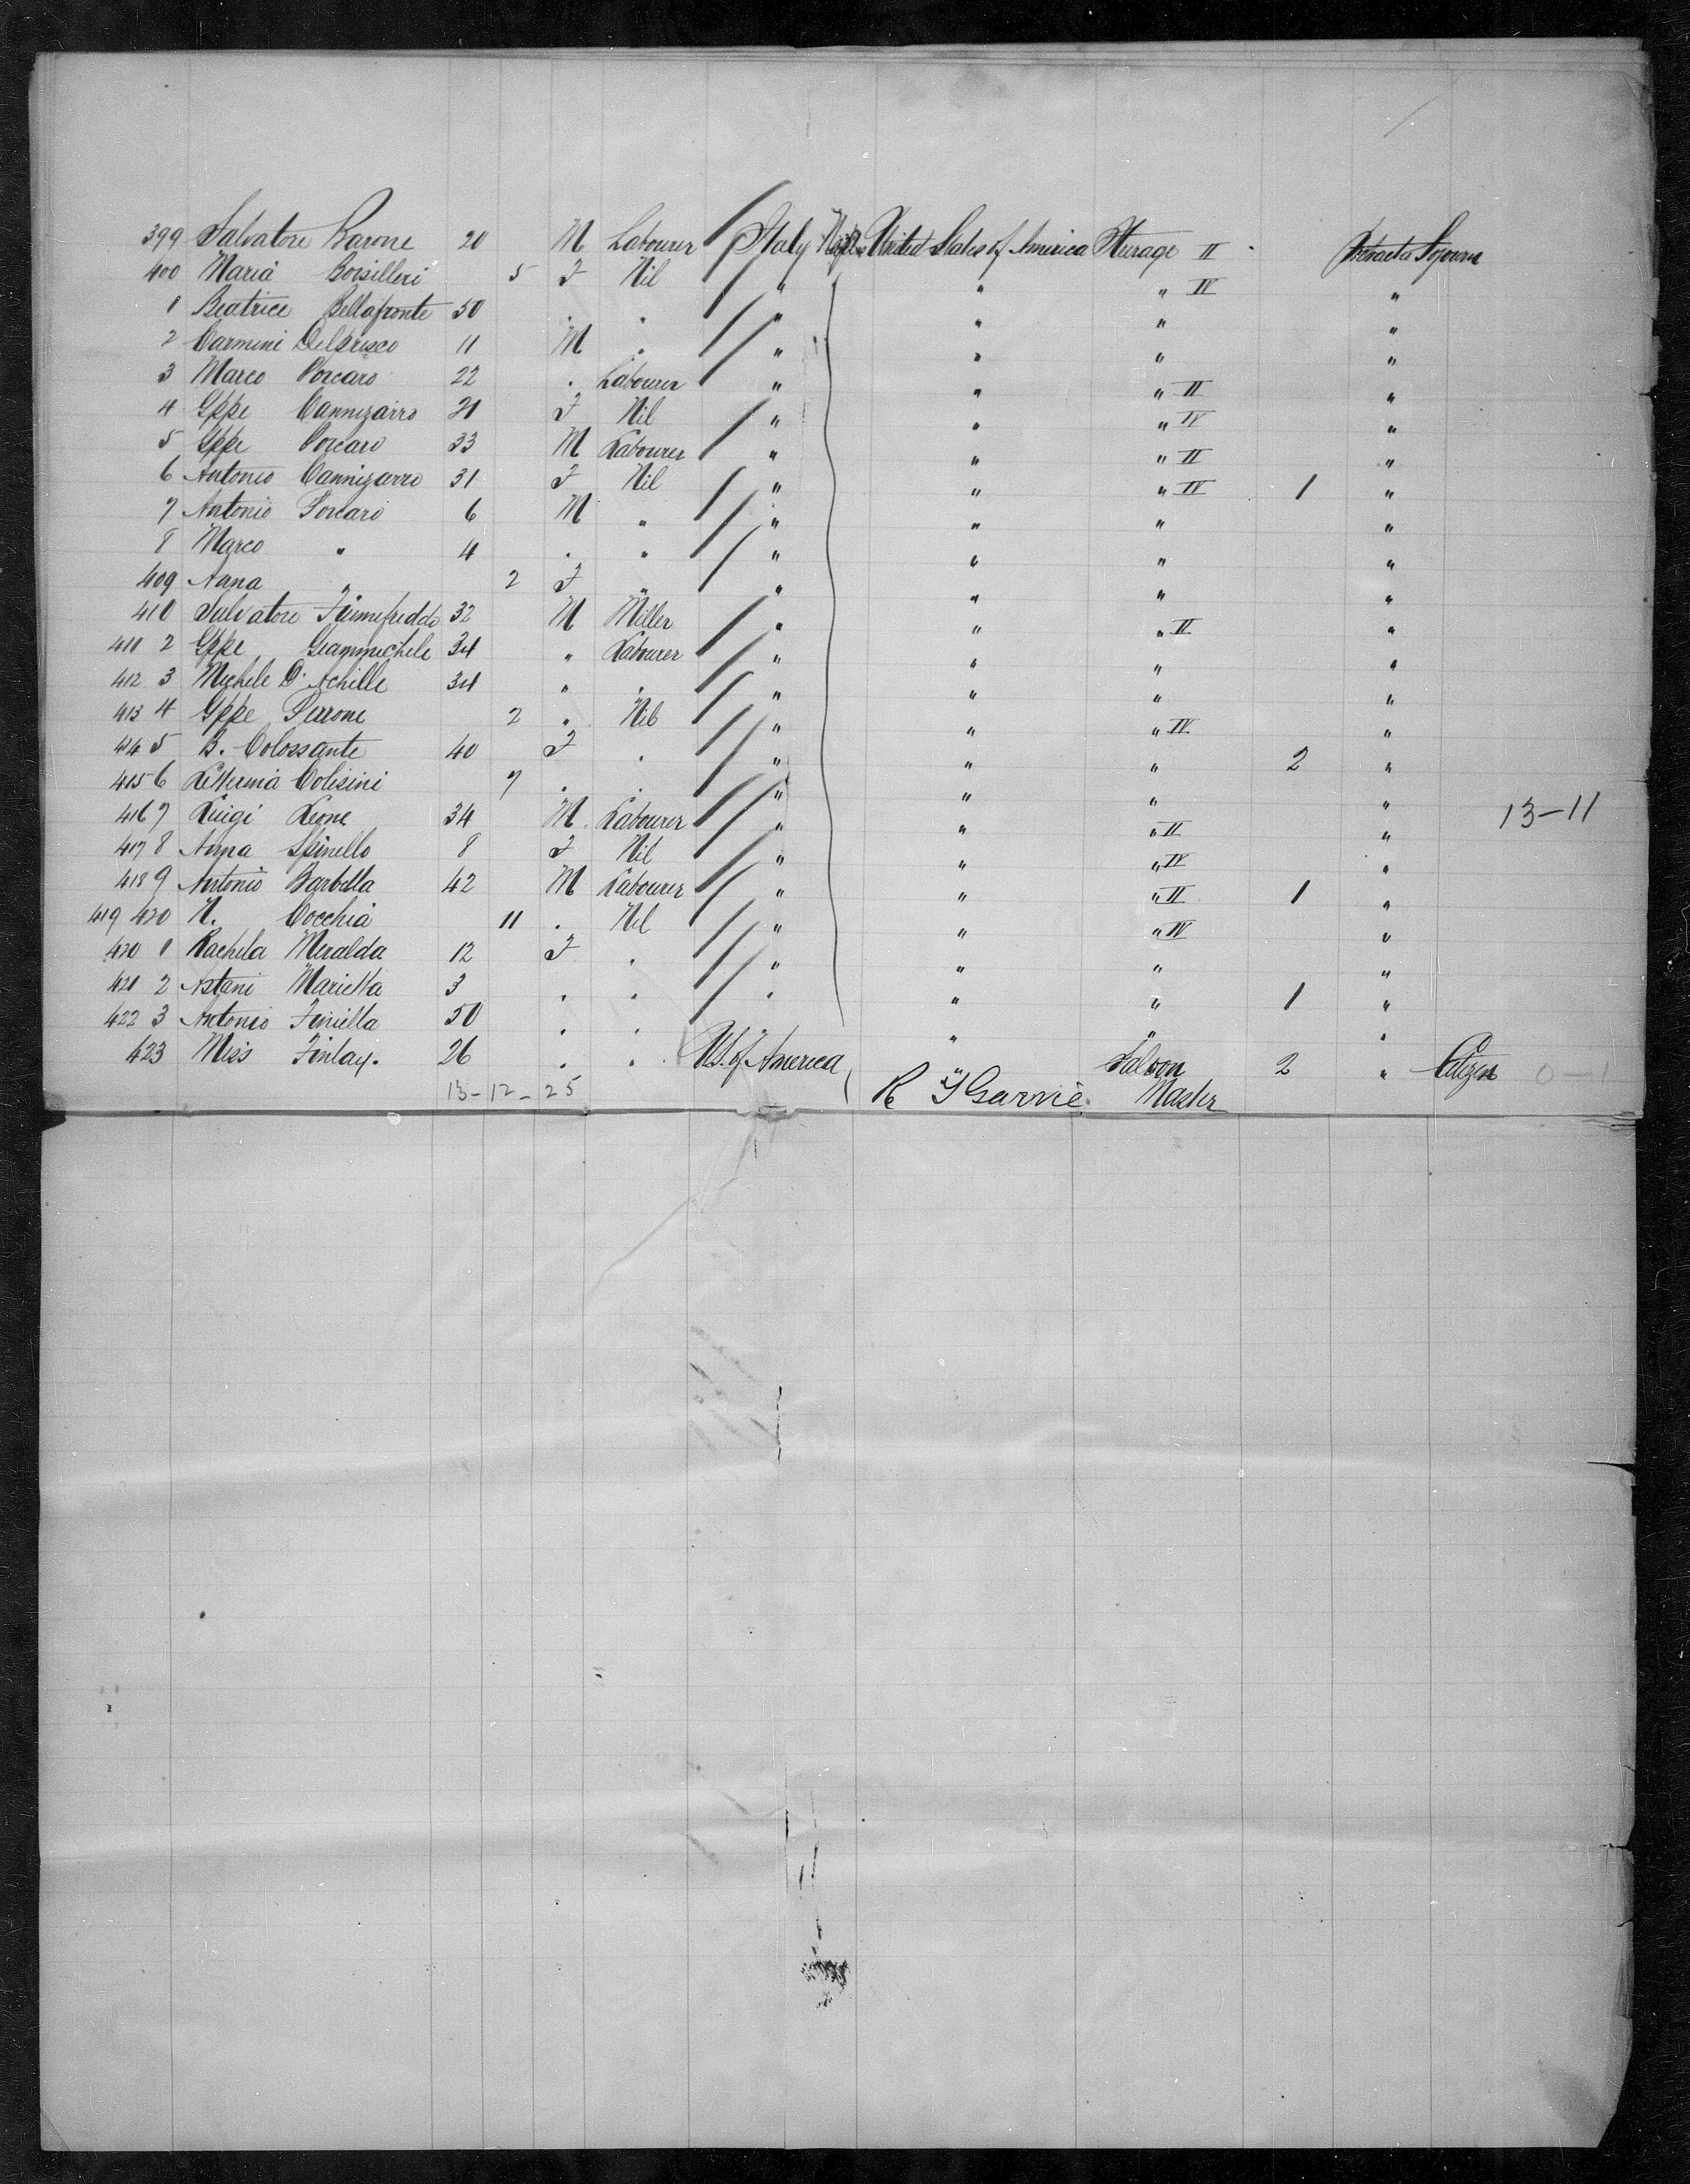 399 Salvatore Barone 20 M Labourer Italy Naples United States of America Steerage II Protracted Sojourn
400 Maria Borsilleri 5 F Nil " " " IV "
1 Beatrice Bellafronte 50 . . " " " "
2 Carmini Delprisco 11 M . " " " "
3 Marco Porcaro 22 . Labourer " " " II "
4 Gppe Cannizarro 21 F Nil " " " IV "
5 Gppe Porcaro 33 M Labourer " " " II "
6 Antonio Cannizarro 31 F Nil " " " IV 1 "
7 Antonio Porcaro 6 M " " " " "
8 Marco " 4 . " " " " "
409 Anna " 2 F " " " " "
410 Salvatore Fiumefreddo 32 M Miller " " " II "
411 2 Gppe Giammichele 34 " Labourer " " " "
412 3 Michele D'Achille 34 " . " " " "
413 4 Gppe Perrone 2 " Nil " " " IV "
414 5 B. Colossante 40 F . " " " 2 "
415 6 Colisini 7 . . " " " "
416 7 Luigi Leone 34 M Labourer " " " II " 13-11
417 8 Anna Spinello 8 F Nil " " " IV "
418 9 Antonio Barbella 42 M Labourer " " " II 1 "
419 420 N. Cocchia 11 . Nil " " " IV "
420 1 Rachela Meralda 12 F . " " " "
421 2 Astani Marietta 3 . . " " " 1 "
422 3 Antonio 50 . . " " "
423 Miss Finlay. 26 . . U.S. of America Saloon 2 " Citizen 0-1
13-12-25 R Y Garvie Master